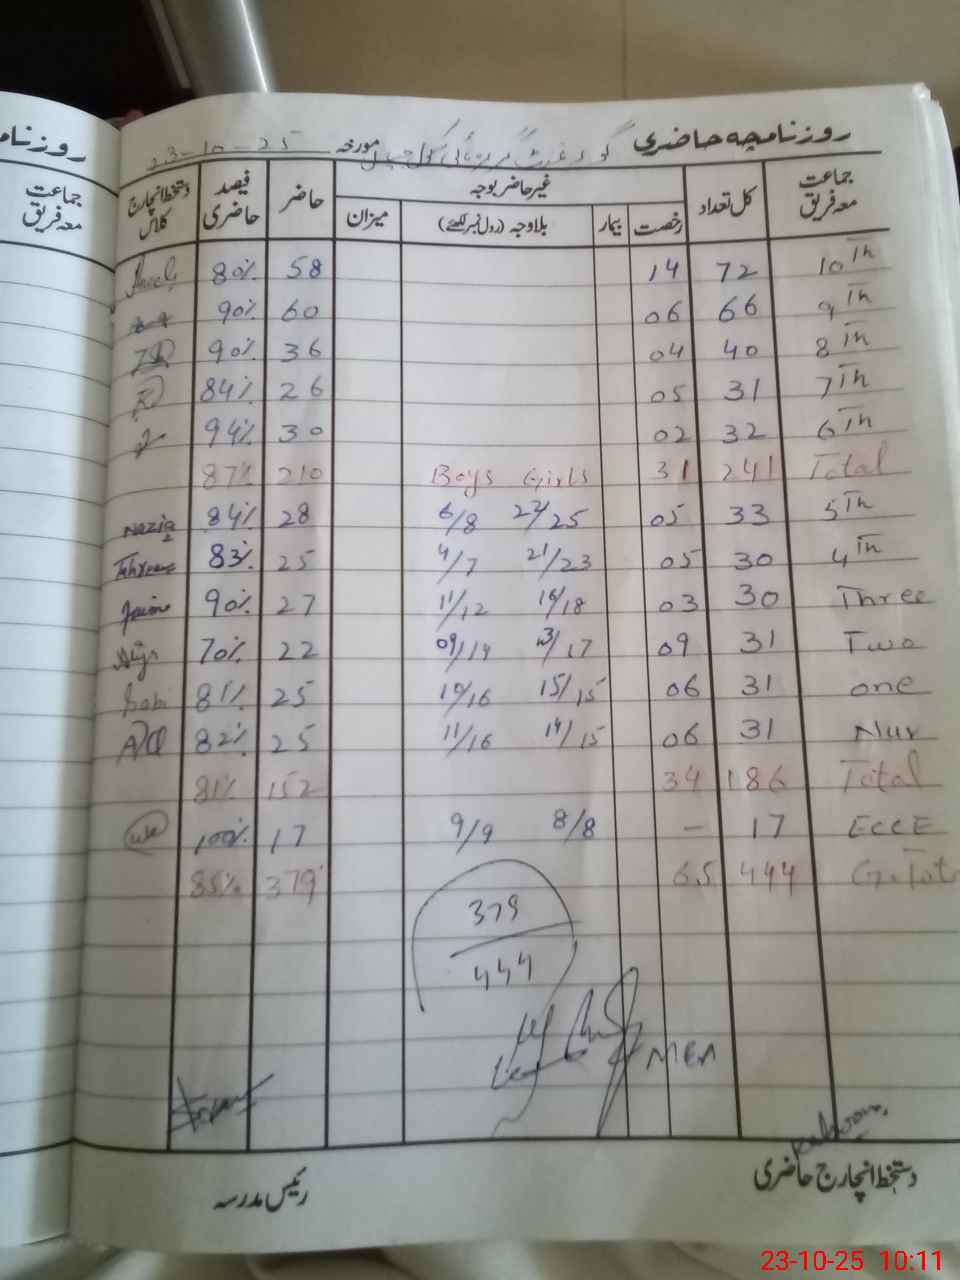 روزنامچہ حاضری گورنمنٹ گرلز ہائی سکول مورخہ 23-10-25
روزنام
جماعت معہ فریق کل تعداد غیر حاضر بوجہ حاضر فیصد حاضری دستخط انچارج کلاس
رخصت بیمار بلاوجہ (رول نمبر لکھئے) میزان
جماعت
معہ فریق
10th 72 14 58 80%
9th 66 06 60 90%
8th 40 04 36 90%
7th 31 05 26 84%
6th 32 02 30 94%
Total 241 31 Boys Girls 210 87%
5th 33 05 6/8 22/25 28 84% Nazia
4th 30 05 4/7 21/23 25 83%
Three 30 03 11/12 16/18 27 90%
Two 31 09 09/14 13/17 22 70%
one 31 06 10/16 15/15 25 81%
Nur 31 06 11/16 14/15 25 82%
Total 186 34 152 81%
ECCE 17 – 9/9 8/8 17 100%
G.Tot 444 65 379 85%
379
444
MEA
دستخط انچارج حاضری
رئیس مدرسہ
23-10-25 10:11